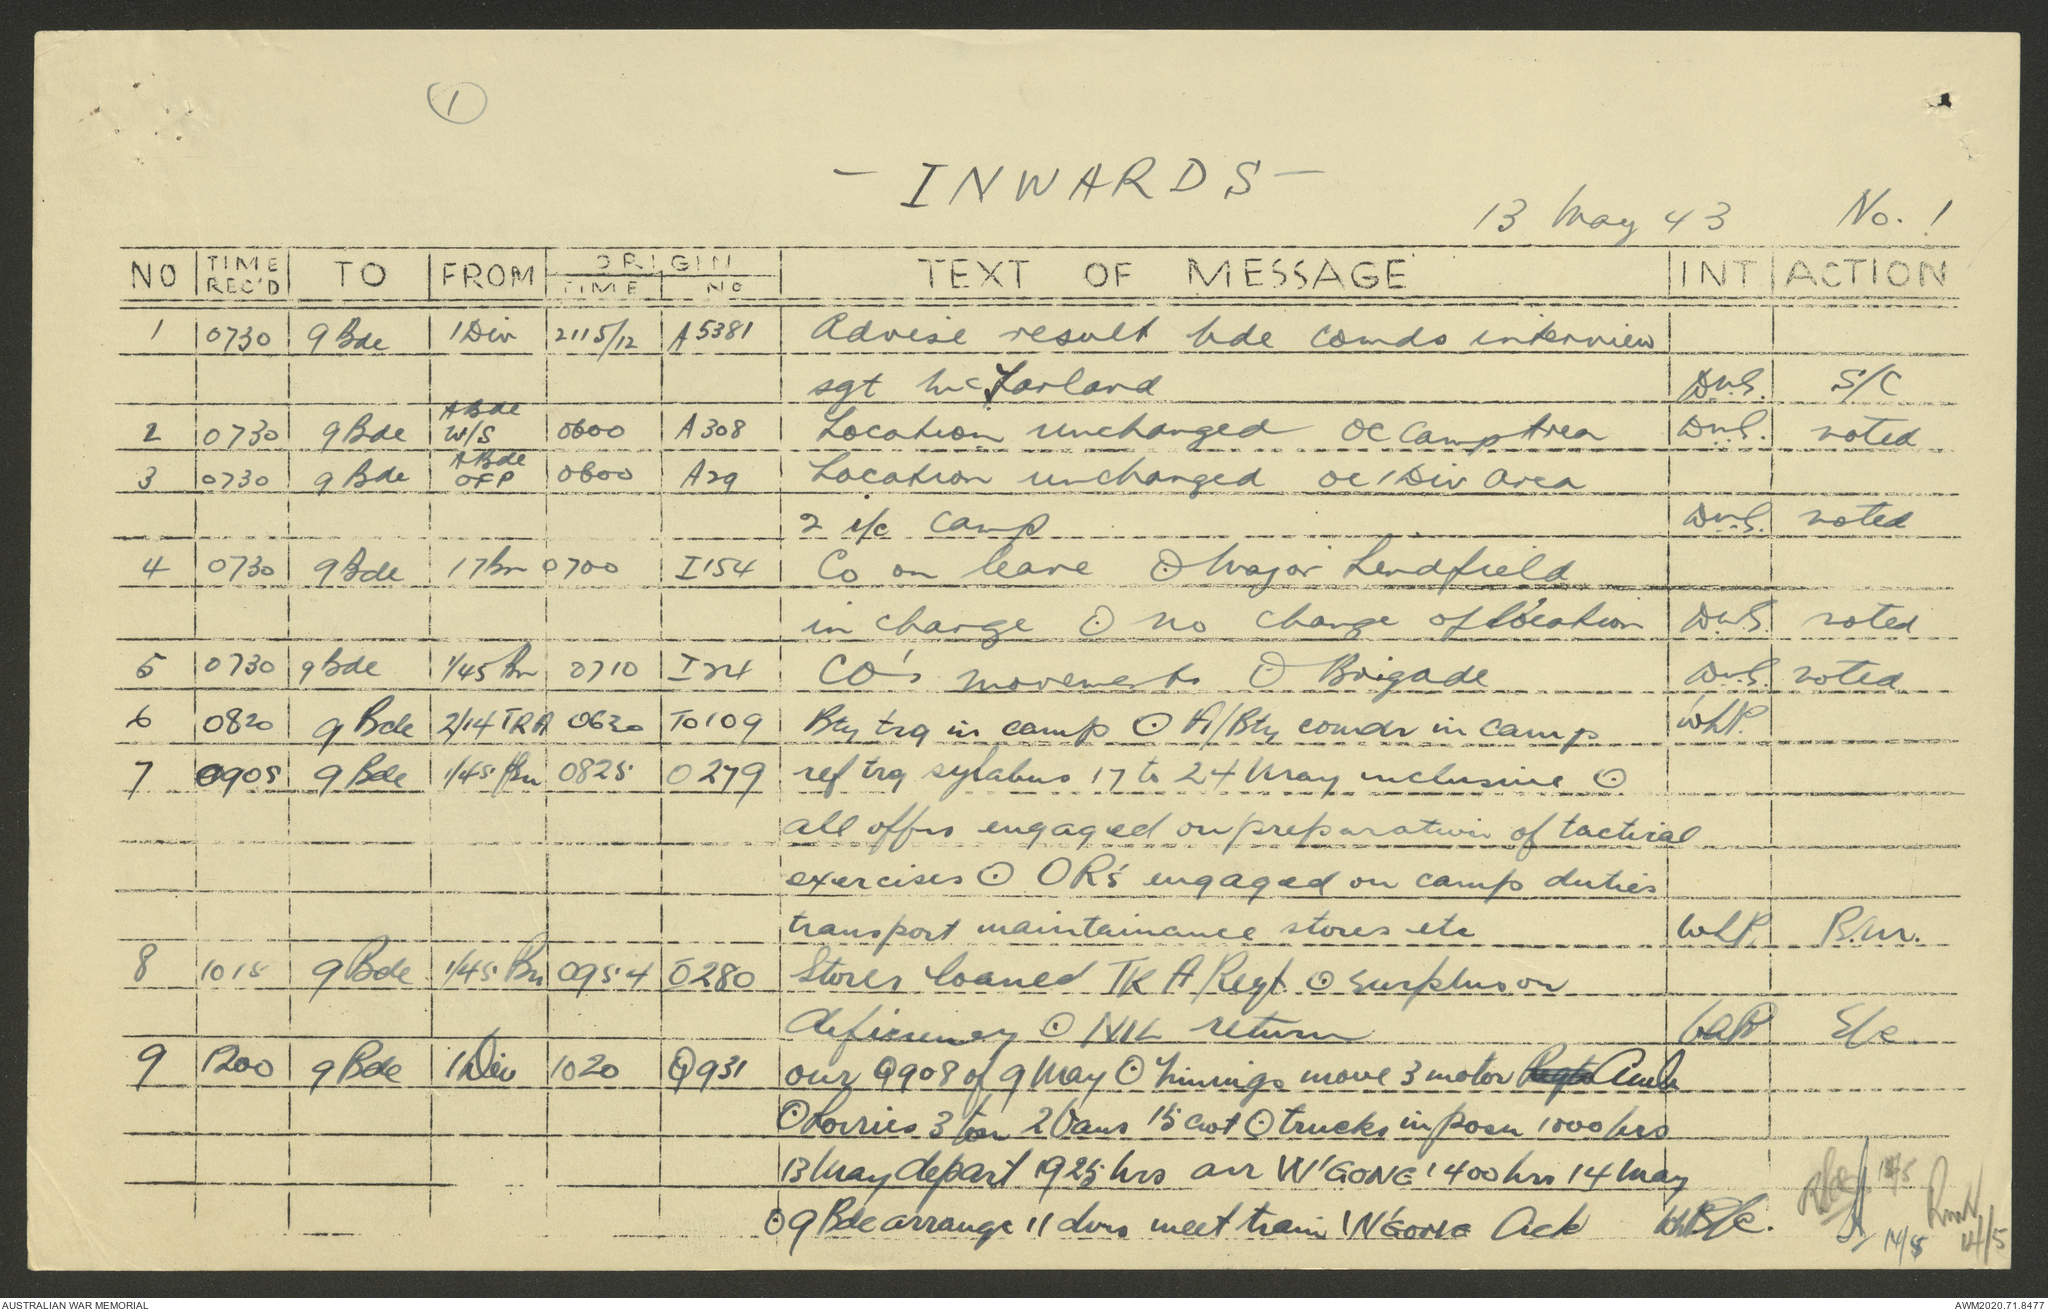 1
- INWARDS -
13 May 43 No. 1
NO TIME REC'D TO FROM ORIGIN TIME NO TEXT OF MESSAGE INT ACTION
1 0730 9 Bde 1 Div 2115/12 A5381 Advise result bde comds interview
sgt McFarland D.McS. S/C
2 0730 9 Bde A Bde W/S 0600 A308 Location unchanged OC Camp Area D.McS. noted
3 0730 9 Bde A Bde OFP 0600 A29 Location unchanged OC 1 Div area
2 i/c camp D.McS. noted
4 0730 9 Bde 17 Bn 0700 I154 Co on leave ⊙ Major Lendfield
in charge ⊙ no change of location D.McS. noted
5 0730 9 Bde 1/45 Bn 0710 I24 CO's movements ⊙ Brigade D.McS. noted
6 0820 9 Bde 2/14 TRA 0630 TO109 Bty trg in camp ⊙ A/Bty comdr in camp WLP.
7 0905 9 Bde 1/45 Bn 0825 O279 ref trg sylabus 17 to 24 May inclusive ⊙
all offrs engaged on preparation of tactical
exercises ⊙ OR's engaged on camp duties
transport maintainance stores etc WLP. B.M.
8 1015 9 Bde 1/45 Bn 0954 O280 Stores loaned TR A/Regt ⊙ surplus or
deficiency ⊙ NIL return WLP S/c.
9 1200 9 Bde 1 Div 1020 Q931 our Q908 of 9 May ⊙ timings move 3 motor Amb
⊙ Lorries 3 ton 2 Vans 15 cwt ⊙ trucks in posn 1000 hrs
13 May depart 1925 hrs arr W'GONG 1400 hrs 14 May
⊙ 9 Bde arrange 11 dvrs meet train W'GONG Ack S/c.
13/5
14/5
14/5
AUSTRALIAN WAR MEMORIAL AWM2020.71.8477